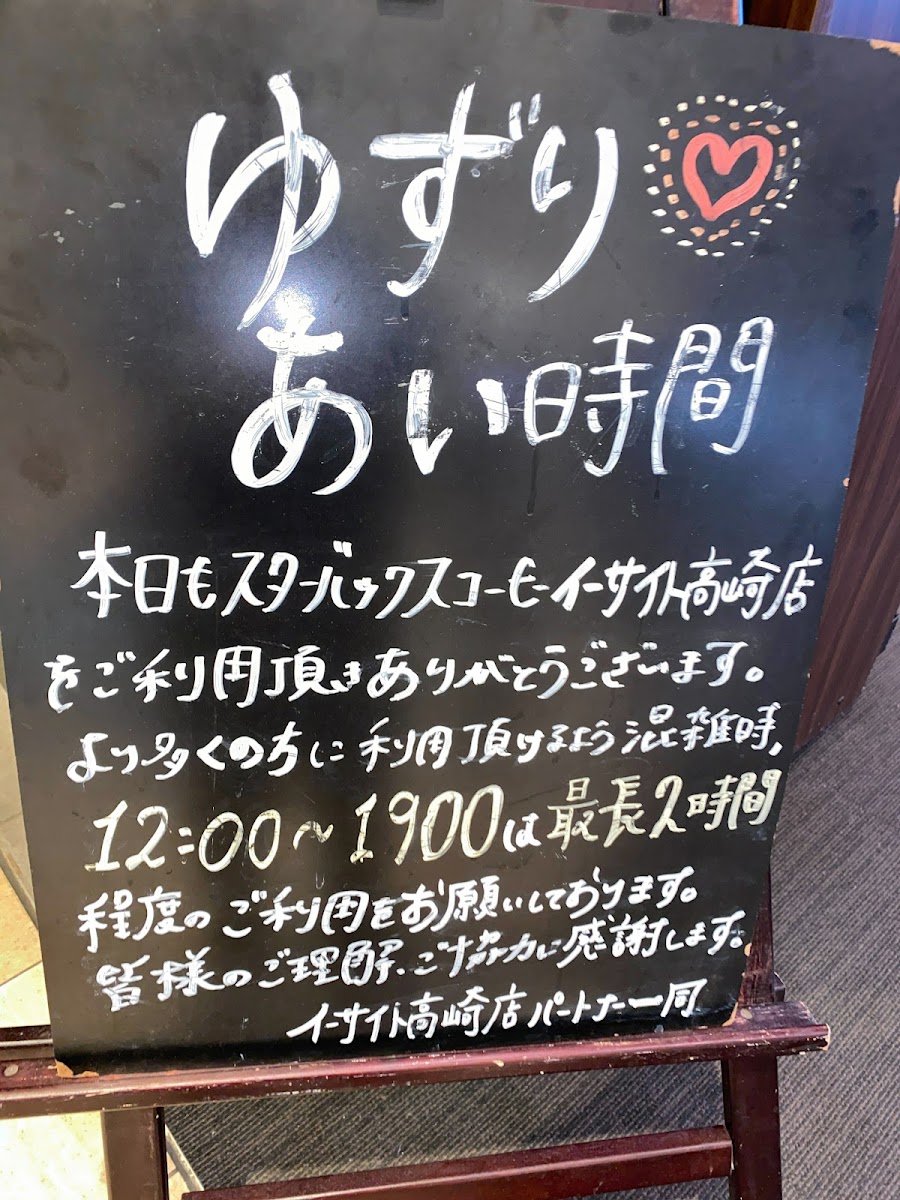 ゆずり
あい時間
本日もスターバックスコーヒーイーサイト高崎店
をご利用頂きありがとうございます。
より多くの方に利用頂けるよう混雑時,
12:00～1900は最長2時間
程度のご利用をお願いしております。
皆様のご理解、ご協力に感謝します。
イーサイト高崎店パートナー一同